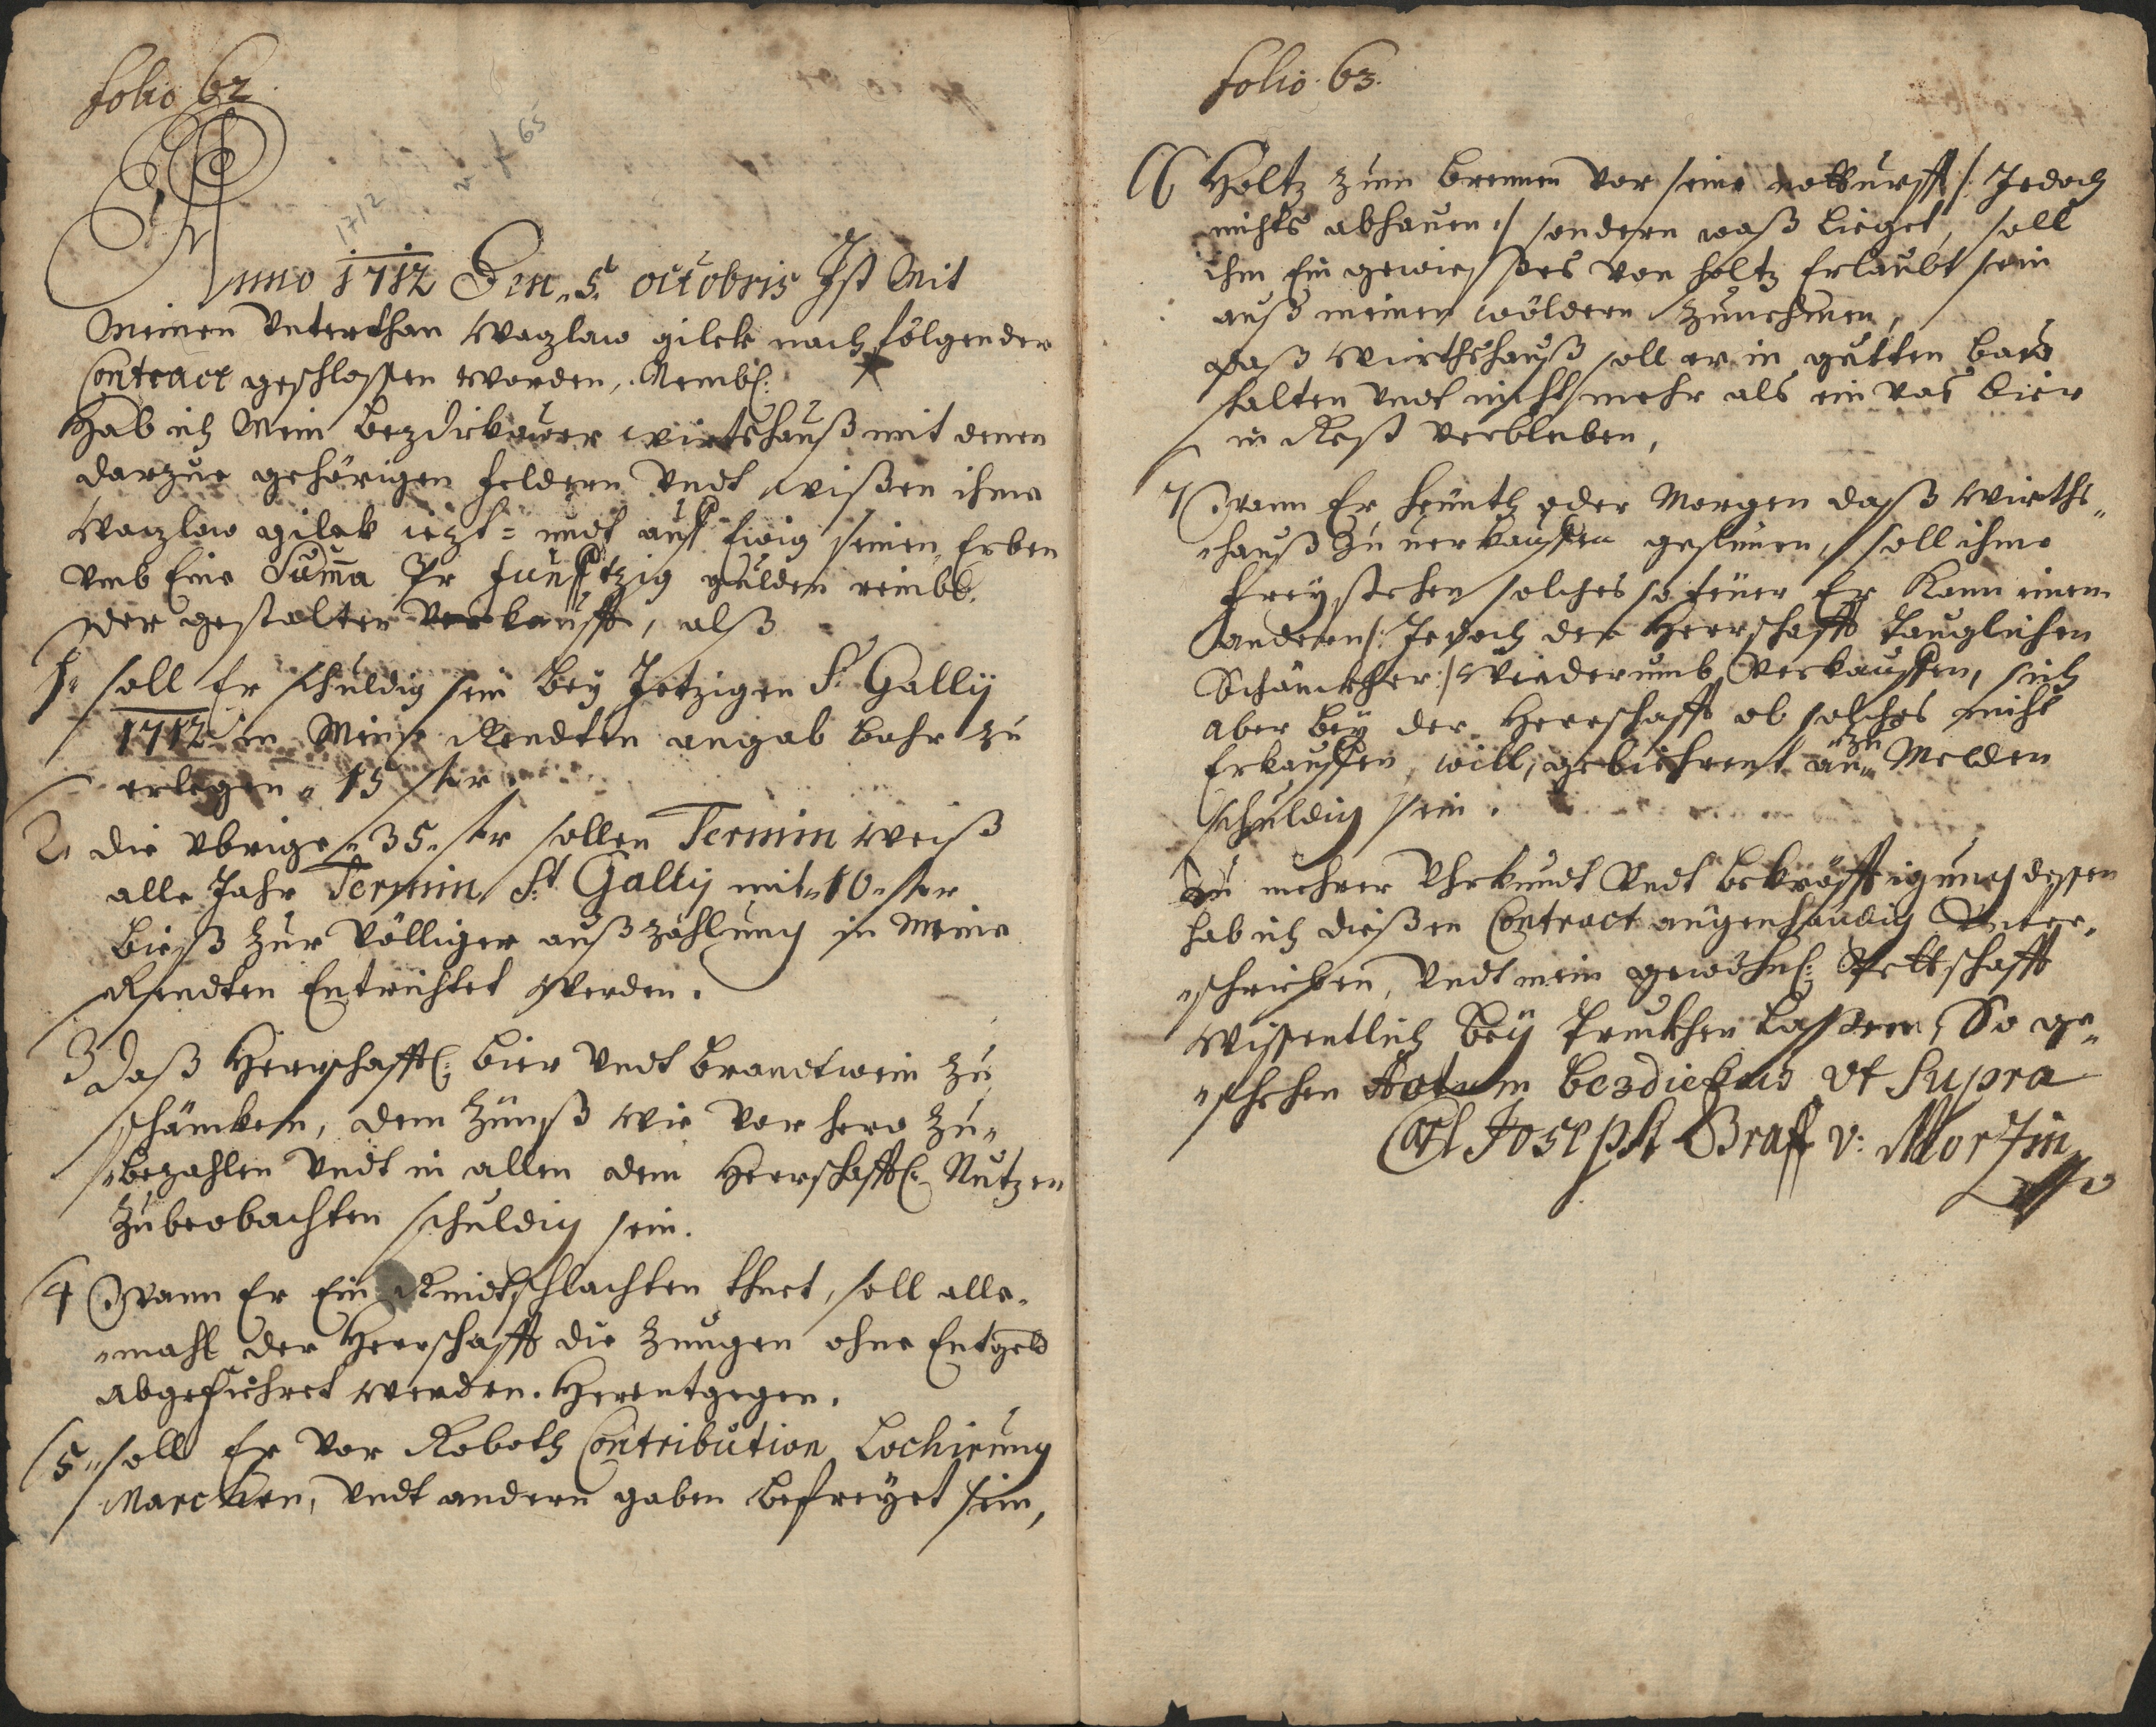 folio 62.
1712
65
Anno 1712 Den 5. octobris Ist Mit
Meinen Unterthan Wazlaw gilek nachfolgender
Contract geschlossen worden, Nembl:
Hab ich Mein Bezdiekower wirtshauß mit denen
darzue gehörigen feldern Undt wißen ihme
Wazlaw gilek iezt= undt auf Ewig seinen Erben
Umb Eine Suma Pr funfftzig gulden reinl.
der gestalten Verkaufft, alß
1. soll Er schuldig sein Bey Jetzigen St. Gallij
1712 in Meine Rendten angab bahr zu
erlegen 15 ſ xr
2. die Ubrige 35 ſ xr sollen Termin weiß
alle Jahr Termin St. Gallij mit 10 ſ xr
bieß zur Völliger außzahlung in Meine
Rendten Entrichtet Werden.
3 daß Herrschaffl: bier Undt brandtwein zu
schäncken, dem Zünß wie vorhero zu„
„bezahlen Undt in allen dem Herrschaffl: Nutzen
zubeobachten schuldig sein.
4 Wann Er Ein Rindt schlachten thuet, soll alle„
„mahl der Herrschafft die Zungen ohne Entgeld
abgeführet werden. Herentgegen.
5 soll Er Vor Roboth Contribution Lochirung
Marchen, Undt andern gaben befreyet sein,
folio 63.
6 Holtz zum brennen Vor seine notturfft /: Jedoch
nichts abhauen :/ sondern waß lieget, soll
ihm Ein gewießes von holtz Erlaubt sein
auß meinen wöldern zunehmen,
daß Wirthshauß soll er in gutten bau
halten undt nicht mehr als ein vas bier
in Rest Verbleiben,
7 Wann Er heünth oder Morgen daß Wirths„
„hauß zu uerkauffen gesünnen, soll ihme
freystehen solches so teüer Er Kann einem
anderen /: Jedoch der Herrschafft tauglichen
Schänckher :/ Wiederumb Verkauffen, sich
aber bey der Herrschafft ob solches nicht
Erkauffen will, gebiehrent an„ zu Melden
schuldig sein.
Zu mehrer Uhrkundt Undt bekräfftigung dessen
hab ich dießen Contract aügenhändig Unter„
„schrieben, Undt mein gewöhnl: Pettschafft
Wissentlich Bey truckhen laßen, So ge„
„schehen Actum bezdiekau Ut Supra
Carl Joseph Graff v: Mortzin